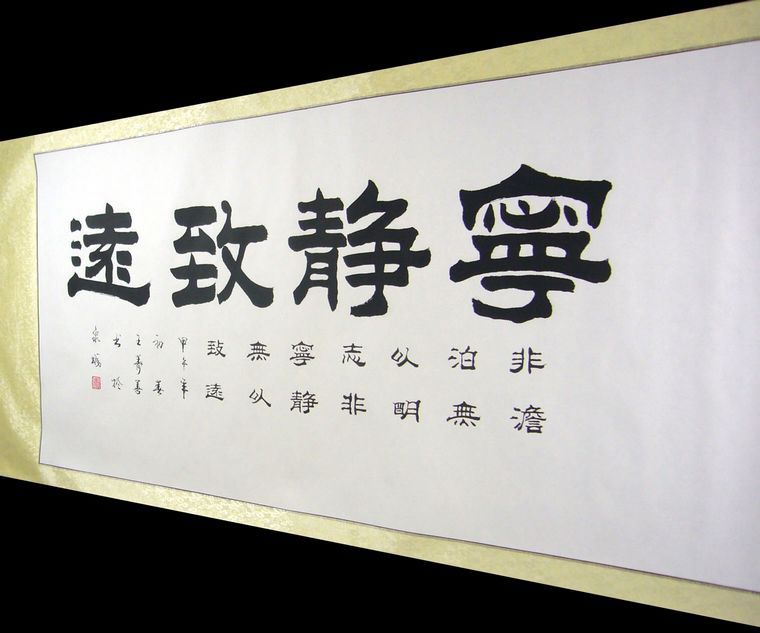 寧静致遠
非澹
泊無
以明
志非
寧静
無以
致遠
甲午年
初春
王寿善
书於
泉城